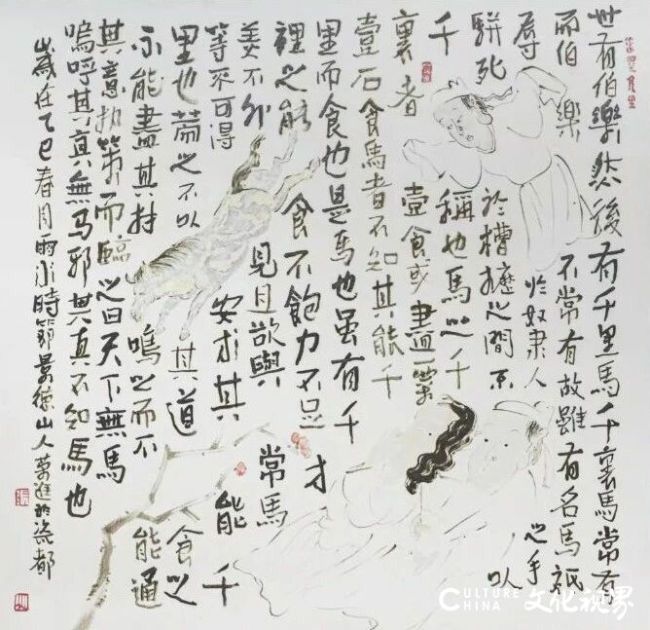 世有伯樂然後有千里馬千裏馬常有
而伯樂不常有故雖有名馬祇
辱於奴隶人之手
駢死於槽櫪之間不以
千稱也馬之千
裏者壹食或盡粟
壹石食馬者不知其能千
里而食也是馬也虽有千
裡之能食不飽力不足才
美不外見且欲與常馬
等不可得安求其能千
里也策之不以其道食之
不能盡其材鳴之而不能通
其意执策而臨之曰天下無馬
嗚呼其真無马邪其真不知馬也
歲在乙巳春月雨水時節景德山人進於瓷都
CULTURE CHINA 文化视界